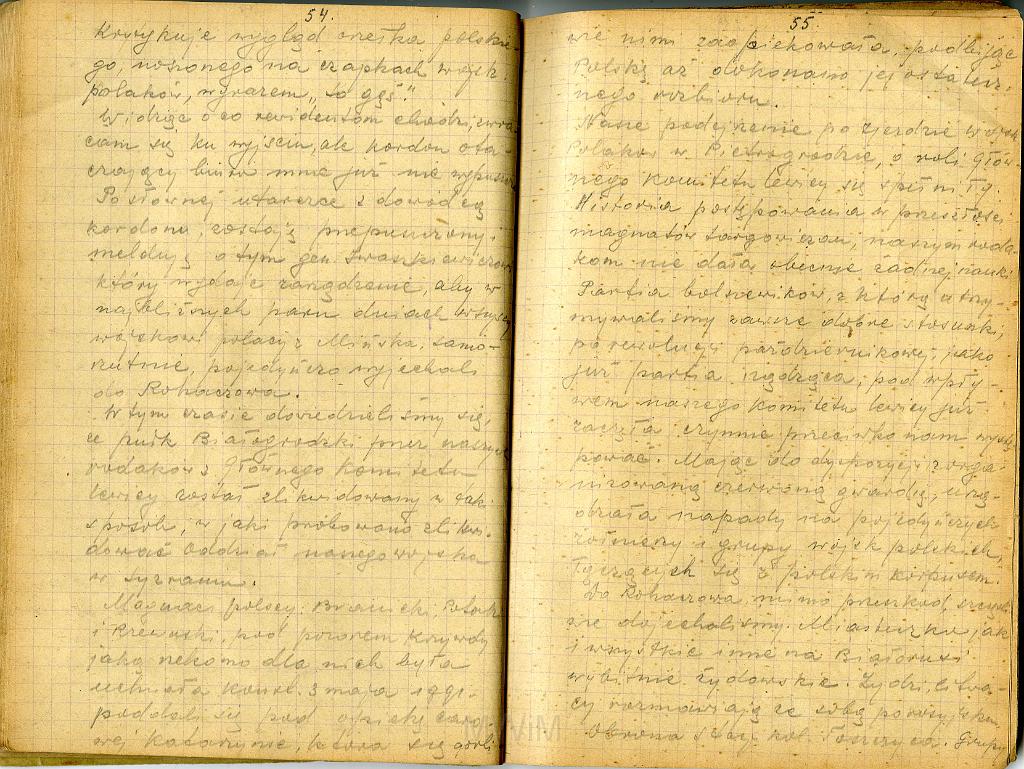 54.
Krytykuje wygląd orełka polskie-
go, noszonego na czapkach wojsk.
polaków, wyrazem „to gęś."
Widząc o co rewidentom chodzi, zwra-
cam się ku wyjściu, ale kordon ota-
czający biuro mnie już nie wypuszcza
Po słownej utarczce z dowódcą
kordonu, zostaję przepuszczony i
melduję o tym gen. Iwaszkiewiczowi
który wydaje zarządzenie, aby w
najbliższych paru dniach wszyscy
wojskowi polacy z Mińska, samo-
rzutnie, pojedyńczo wyjechali
do Rohaczowa.
W tym czasie dowiedzieliśmy się,
że pułk Białogrodzki przez naszych
rodaków z Głównego komitetu
lewicy został zlikwidowany w taki
sposób, w jaki próbowano zlikwi-
dować oddział naszego wojska
w Syzraniu.
Magnaci polscy: Branicki Potocki
i Rzewuski, pod pozorem krzywdy
jaką niekomo dla nich była
uchwała konst. 3 maja 1791.
poddali się pod opiekę caro-
wej Katarzynie, która się gorli-
55
wie nimi zaopiekowała, podbijając
Polskę aż dokonano jej ostatecz-
nego rozbioru.
Nasze podejrzenie po zjeździe wojsk.
Polaków w Pietrogrodzie, o roli Głów-
nego komitetu lewicy się spełniły.
Historia postępowania w przeszłości
magnatów targowiczan, naszym roda-
kom nie dała obecnie żadnej nauki
Partia bolszewików, z którą utrzy-
mywaliśmy zawsze dobre stosunki,
po rewolucji październikowej, jako
już partia rządząca, pod wpły-
wem naszego komitetu lewicy już
zaczęła czynnie przeciwko nam wystę-
pować. Mając do dyspozycji zorga-
nizowaną czerwoną gwardię, urzą-
dzała napady na pojedyńczych
żołnierzy i grupy wojsk polskich,
łączących się z polskim korpusem.
Do Rohaczowa, mimo przeszkod, szczęśli-
wie dojechaliśmy. Miasteczko jak
i wszystkie inne na Białorusi
wybitnie żydowskie. Żydzi, litwa-
cy rozmawiają ze sobą po rosyjsku.
Obrona stacji kol. Toszczyca. Grupy